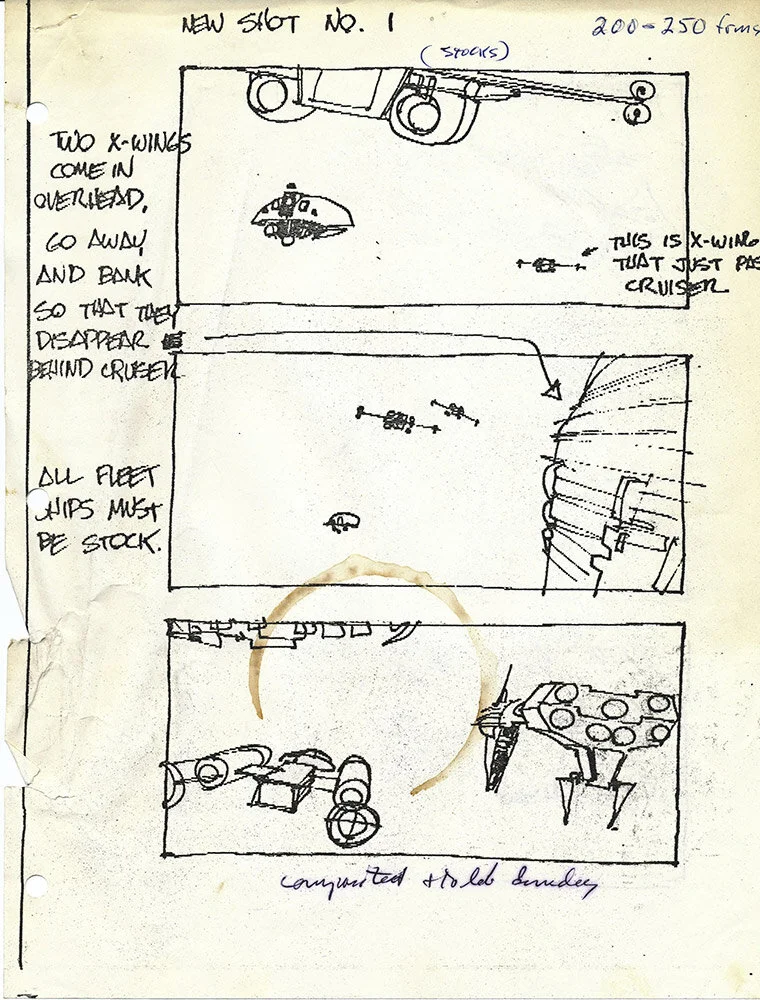 NEW SHOT NO. 1
200-250 frms
(STOCKS)
TWO X-WINGS
COME IN
OVERHEAD,
GO AWAY
AND BANK
SO THAT THEY
DISAPPEAR
BEHIND CRUISER
THIS IS X-WING
THAT JUST PAS
CRUISER
ALL FLEET
SHIPS MUST
BE STOCK.
composited + to lab Sunday